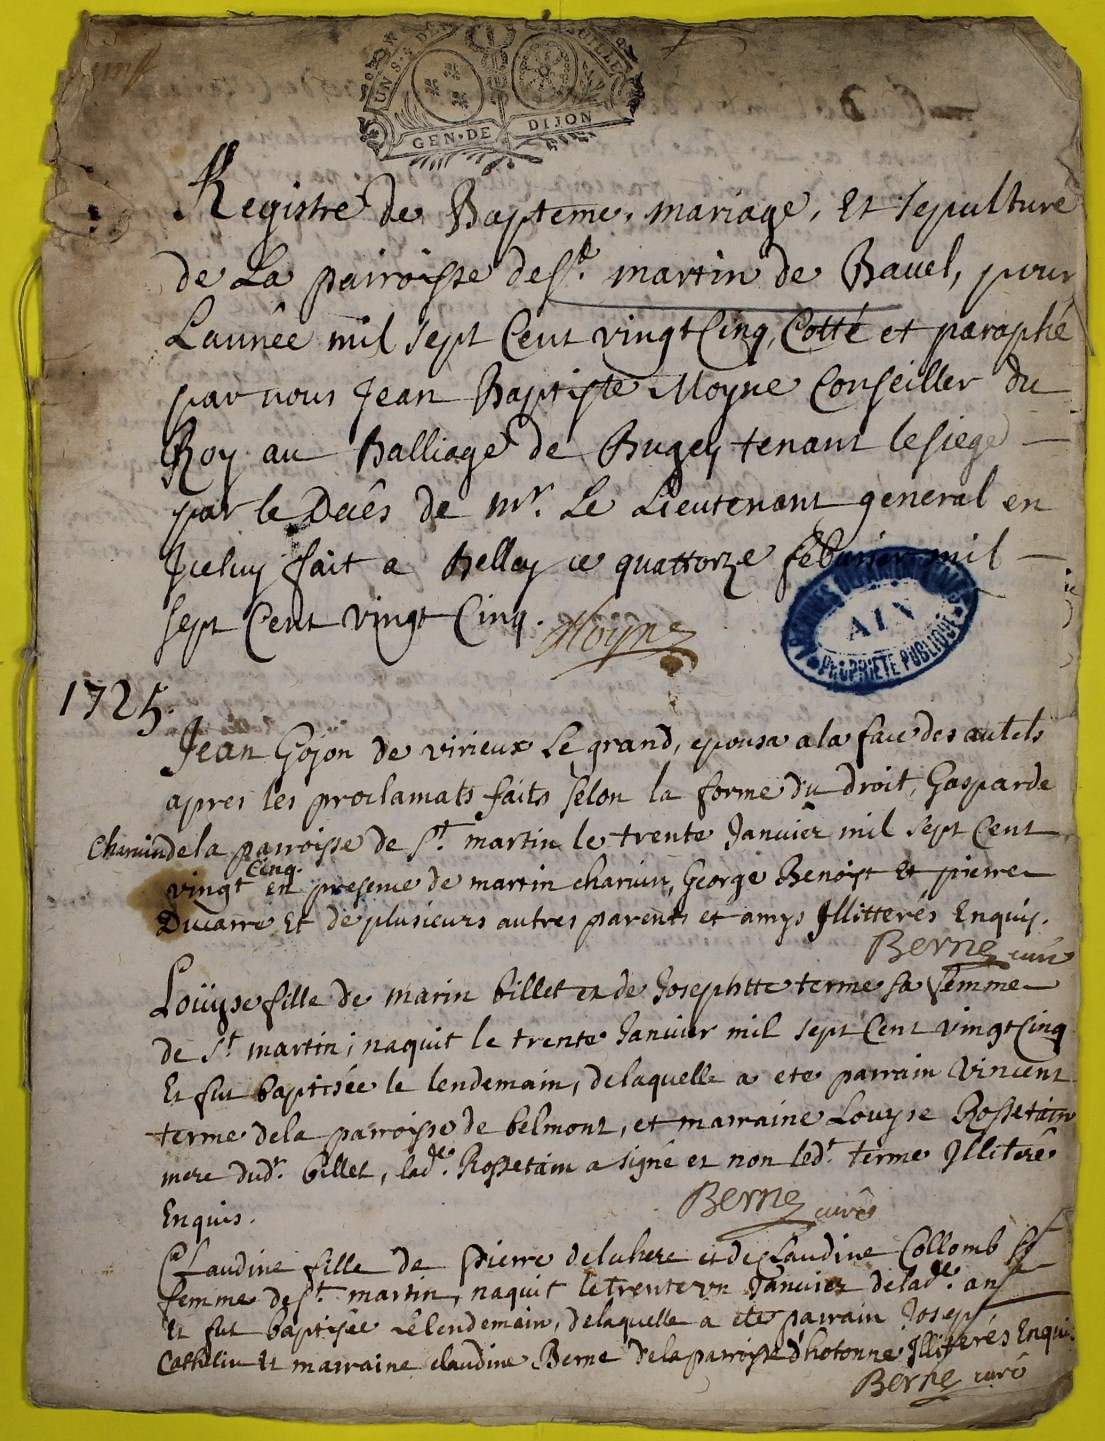 GEN·DE DIJON
Registre de Bapteme, mariage, Et sepulture
de La parroisse de St. martin de Bauel, pour
L'année mil sept Cent vingt Cinq, Cotté et paraphé
par nous Jean Baptiste Moyne Conseiller du
Roy au Balliage de Bugey tenant le siege
par le Decês de mr. Le Lieutenant general en
Iceluy fait a Belley ce quattorze febvrier mil
sept Cent vingt Cinq. Moyne
AIN
PROPRIETE PUBLIQUE
1725.
Jean Gojon de virieux Le grand, epousa a la face des autels
apres les proclamats faits selon la forme du droit, Gasparde
Charvin de la parroisse de St. martin le trente Janvier mil sept Cent
vingt Cinq. en presence de martin charvin, George Benoist Et pierre
Ducarre Et de plusieurs autres parents et amys Illitterés Enquis.
Berne curé
Loüyse fille de marin billet et de Josephtte terme sa femme
de St. martin; naquit le trente Janvier mil sept Cent vingt Cinq
Et fut baptisée le lendemain, de laquelle a ete parrain Vincent
terme de la parroisse de belmont, et marraine Louyse Rossetain
mere dudt. billet, lade. Rossetain a signé et non ledt. terme Illiteré
Enquis. Berne curé
Claudine fille de Pierre deluhere et de Claudine Collomb sa
femme de St. martin, naquit le trente un Janvier de lade. an
Et fut baptisée le lendemain, de laquelle a ete parrain Josep
Cathelin Et marraine claudine Berne de la parroisse d'hotonne Illiterés Enqui
Berne curé